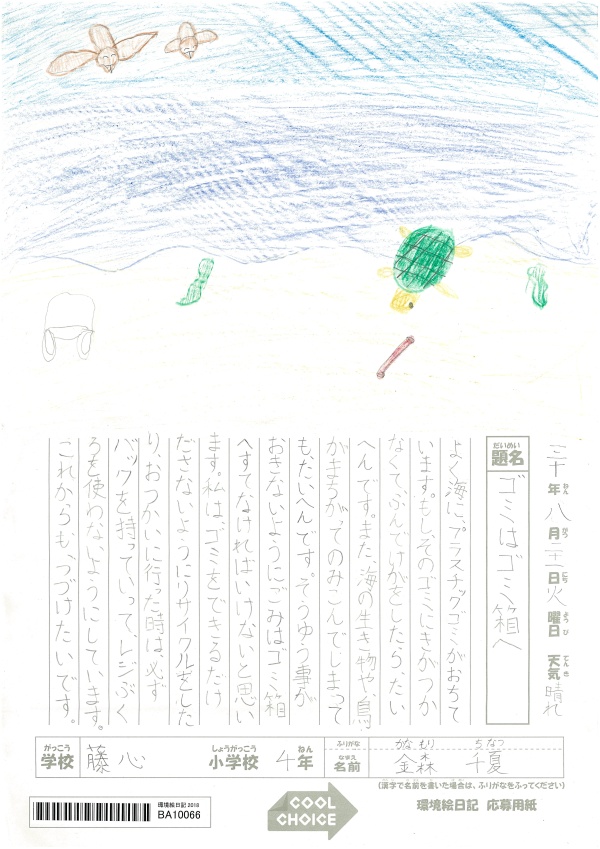 三十年八月二十一日火曜日 天気 晴れ
ねん がつ にち ようび てんき
だいめい
題名 ゴミはゴミ箱へ
よく海に、プラスチックゴミがおちて
います。もしそのゴミにきがつか
なくて、ふんでけがをしたら、たい
へんです。また、海の生き物や、鳥
がまちがってのみこんでしまって
も、たいへんです。そうゆう事が
おきないようにごみはゴミ箱
へすてなければいけないと思い
ます。私は、ゴミをできるだけ
ださないようにリサイクルをした
り、おつかいに行った時は、必ず
バックを持っていって、レジぶく
ろを使わないようにしています。
これからも、つづけたいです。
がっこう しょうがっこう ねん ふりがな かなもり ちなつ
学校 藤心 小学校 4年 なまえ 名前 金森 千夏
(漢字で名前を書いた場合は、ふりがなをふってください)
環境絵日記 2018
BA10066
COOL
CHOICE
環境絵日記 応募用紙